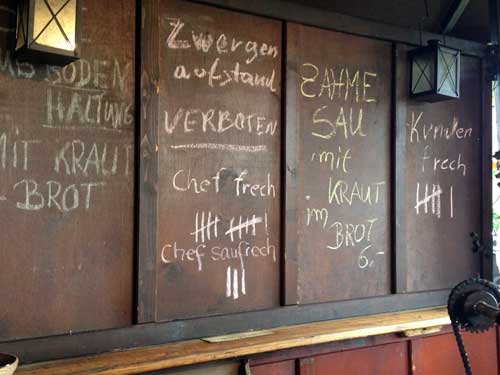 BODEN
HALTUNG
MIT KRAUT
BROT
Zwergen
aufstand
VERBOTEN
Chef frech
|||| ||||
Chef saufrech
|||
ZAHME
SAU
mit
KRAUT
im
BROT
6.-
Kunden
frech
|||| |